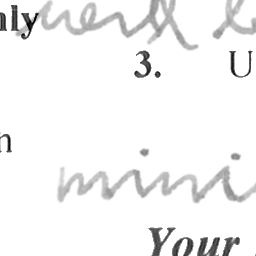 nly
3. U
n
mini
Your